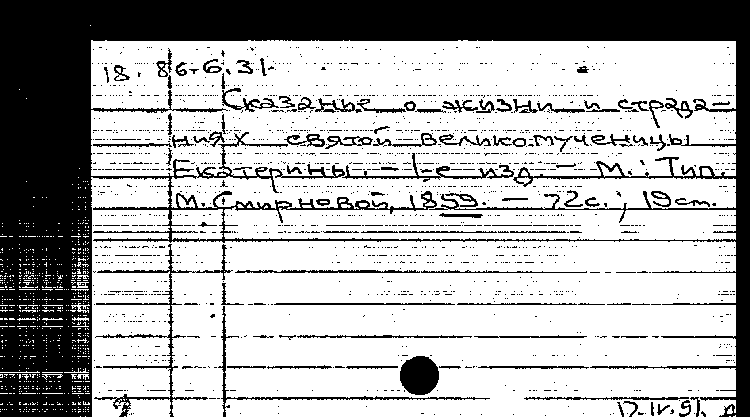 18. 86.6.31.
Сказание о жизни и страда-
ниях святой великомученицы
Екатерины. - 1-е изд. - М.: Тип.
М. Смирновой, 1859. - 72с.; 19см.